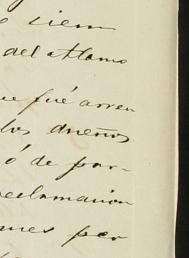 siem
del alamo
que fué arren
los dueños
ó de par-
reclamacion
ones per